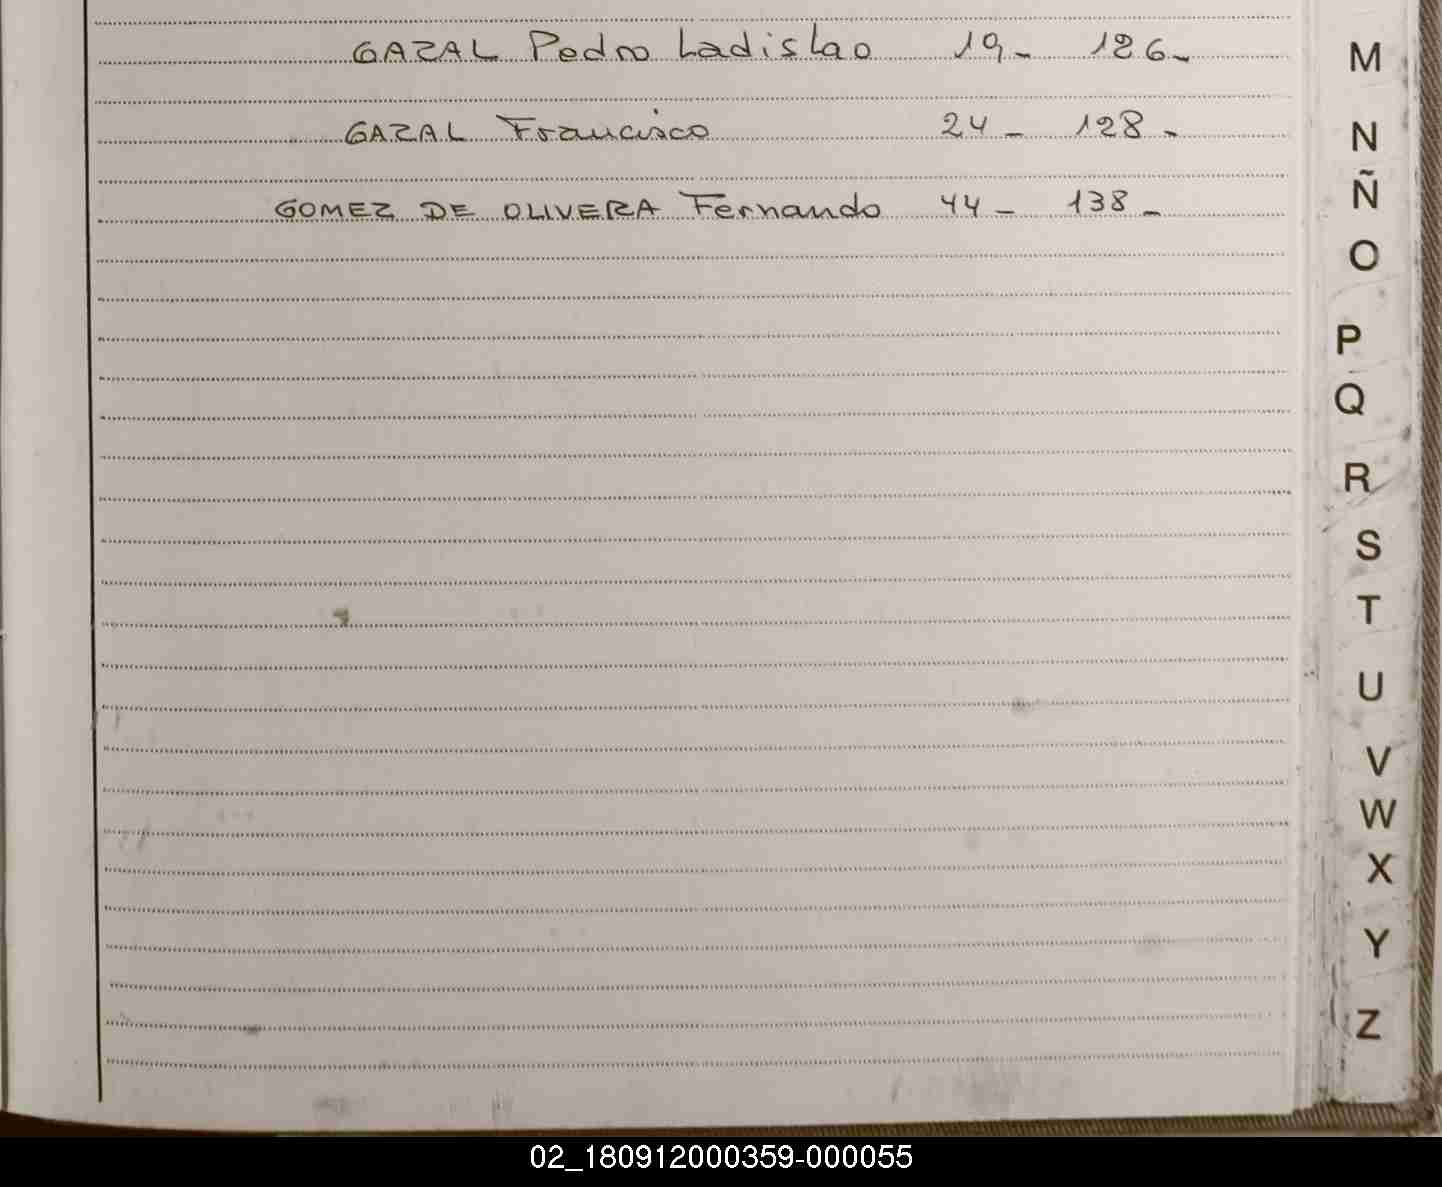 GAZAL Pedro Ladislao 19- 126-
GAZAL Francisco 24- 128-
GOMEZ DE OLIVERA Fernando 44- 138-
M
N
Ñ
O
P
Q
R
S
T
U
V
W
X
Y
Z
02_180912000359-000055